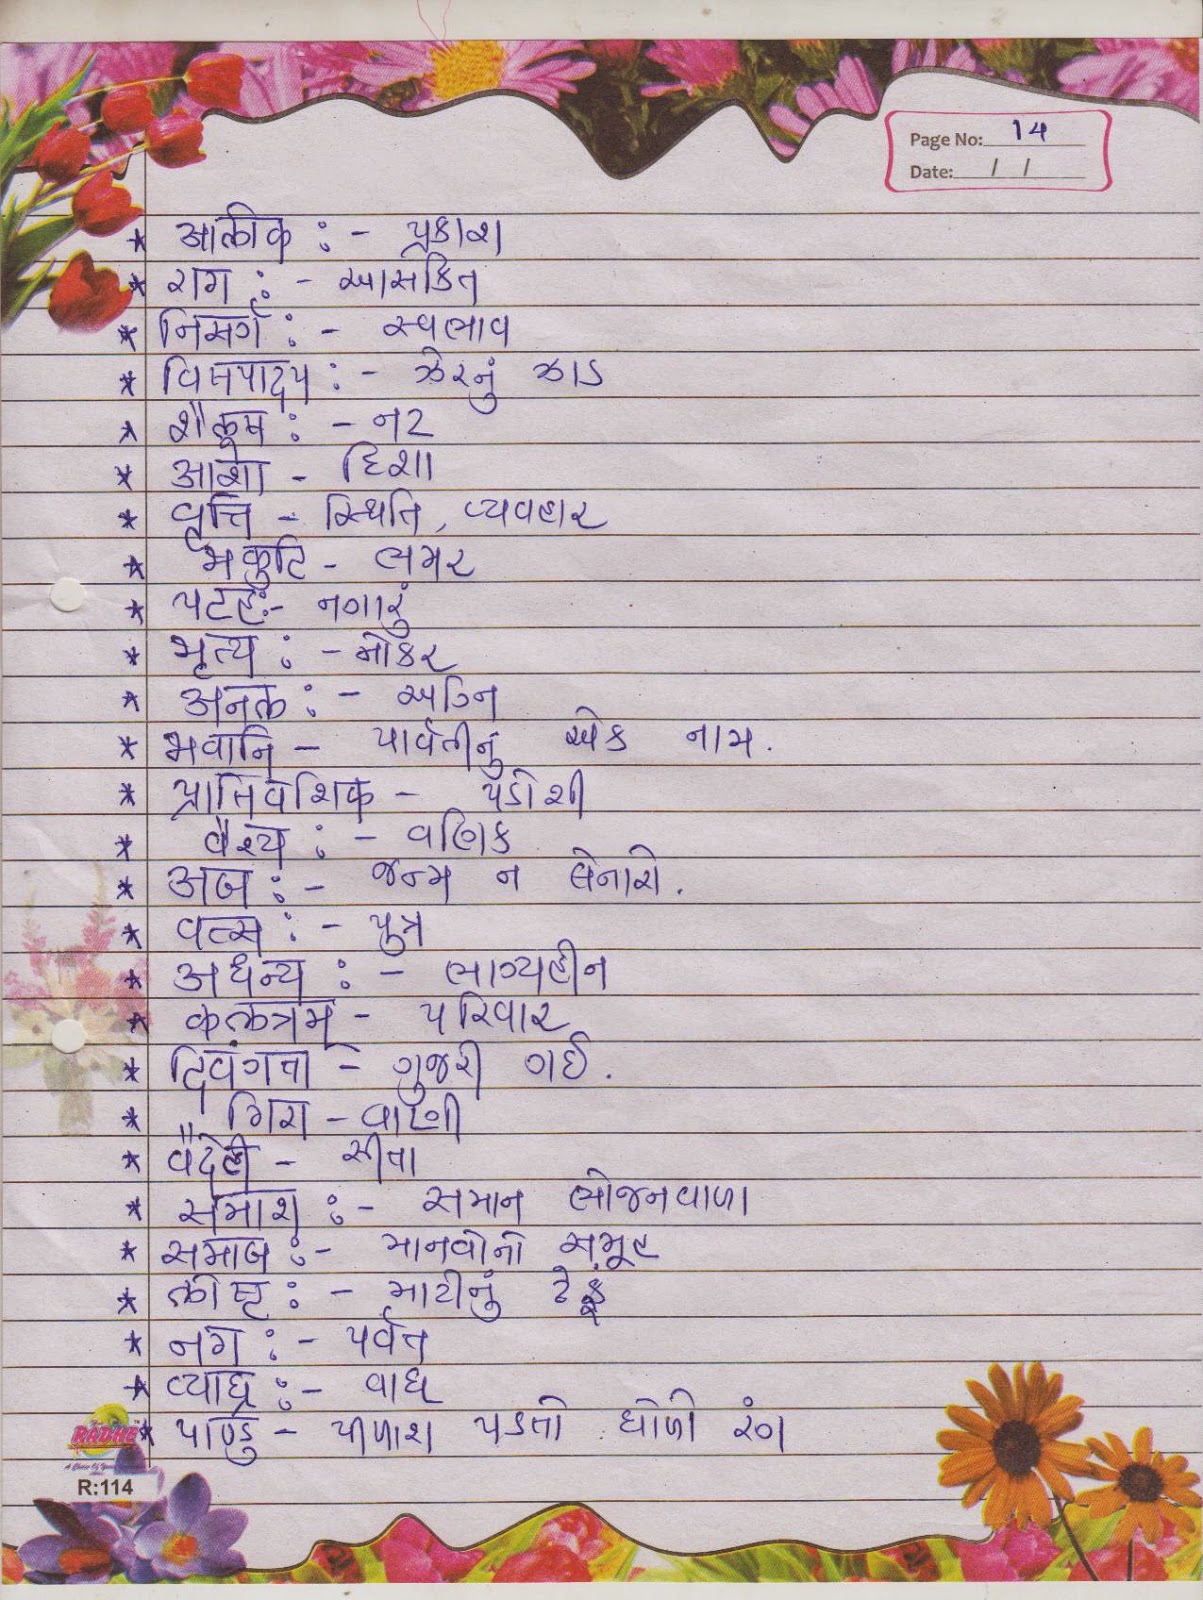 Page No: 14
Date: / /
* आलोक : - પ્રકાશ
* राग : - આસકિત
* निसर्ग : - સ્વભાવ
* विषपादप : - ઝેરનું ઝાડ
* शैलूष : - નટ
* आशा - દિશા
* वृत्ति - સ્થિતિ, વ્યવહાર
* भ्रकुटि - ભમર
* पटह :- નગારું
* भृत्य : - નોકર
* अनल : - અગ્નિ
* भवानि - પાર્વતીનું એક નામ.
* प्रातिवेशिक - પડોશી
* वैश्य : - વણિક
* अज : - જન્મ ન લેનારો.
* वत्स : - પુત્ર
* अधन्य : - ભાગ્યહીન
* कलत्रम् - પરિવાર
* दिवंगता - ગુજરી ગઈ.
* गिरा - વાણી
* वैदेही - સીતા
* समाश : - સમાન ભોજનવાળા
* समाज :- માનવોનો સમૂહ
* लोष्ट : - માટીનું ઢેફું
* नग : - પર્વત
* व्याघ्र :- વાઘ
* पाण्डु - પીળાશ પડતો ધોળો રંગ
RADHE
R:114